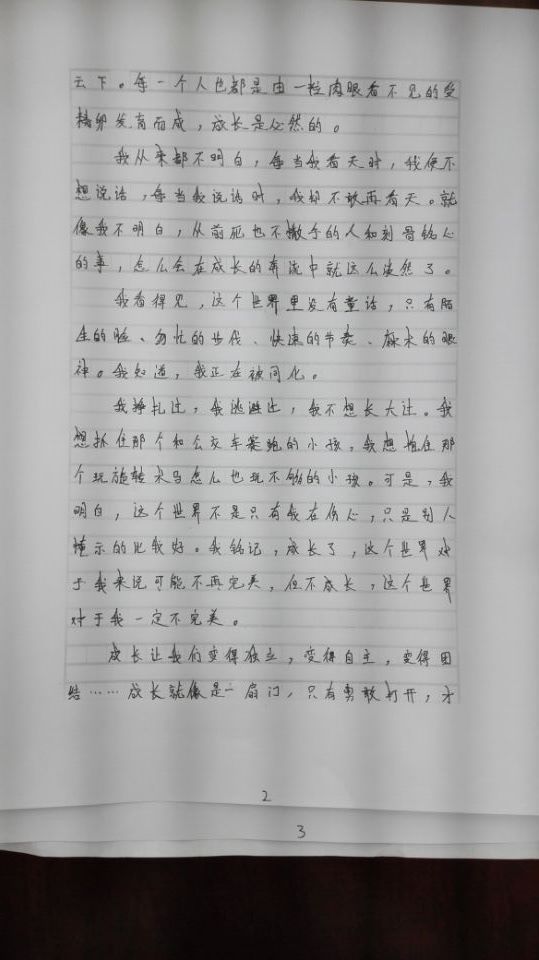 云下。每一个人也都是由一粒肉眼看不见的受
精卵发育而成，成长是必然的。
我从来都不明白，每当我看天时，我便不
想说话，每当我说话时，我却不敢再看天。就
像我不明白，从前死也不撒手的人和刻骨铭心
的事，怎么会在成长的奔流中就这么淡然了。
我看得见，这个世界里没有童话，只有陌
生的脸、匆忙的步伐、快速的节奏、麻木的眼
神。我知道，我正在被同化。
我挣扎过，我逃避过，我不想长大过。我
想抓住那个和公交车赛跑的小孩，我想抱住那
个玩旋转木马怎么也玩不够的小孩。可是，我
明白，这个世界不是只有我在伤心，只是别人
掩示的比我好。我铭记，成长了，这个世界对
于我来说可能不再完美，但不成长，这个世界
对于我一定不完美。
成长让我们变得独立，变得自主，变得团
结……成长就像是一扇门，只有勇敢打开，才
2
3